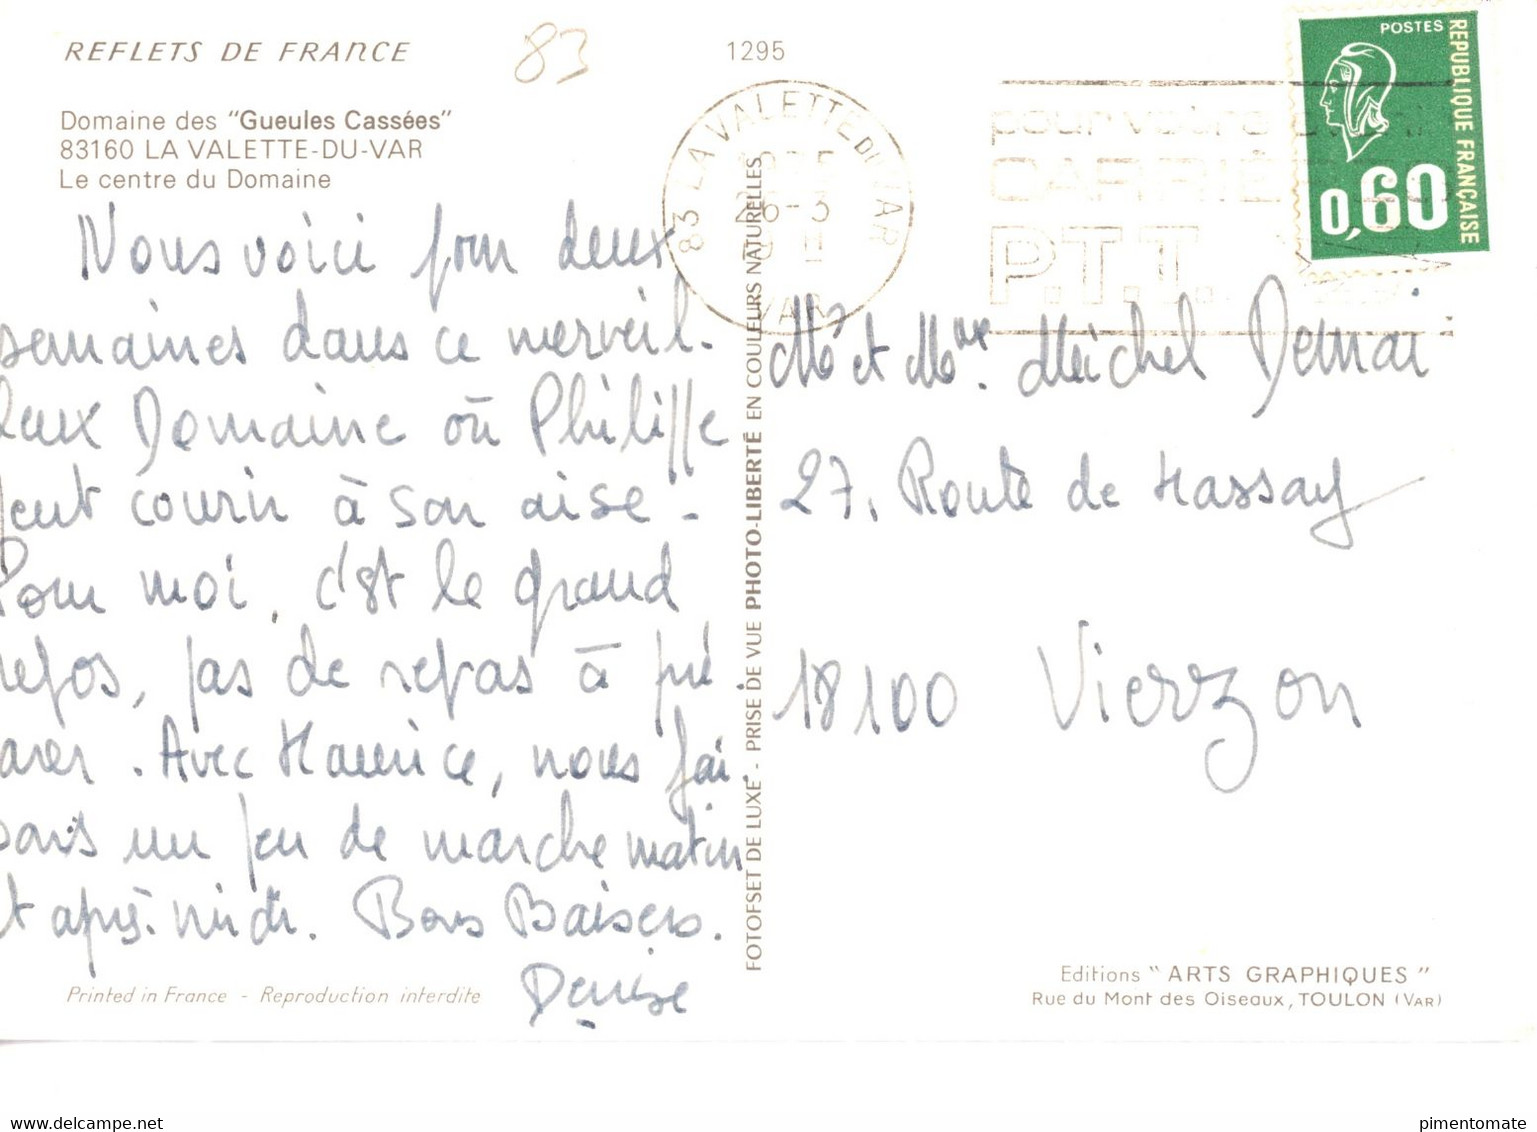 REFLETS DE FRANCE
83
1295
Domaine des "Gueules Cassées"
83160 LA VALETTE-DU-VAR
Le centre du Domaine
Nous voici pour deux
semaines dans ce merveil-
leux Domaine où Philippe
peut courir à son aise -
Pour moi, c'est le grand
repos, pas de repas à pré-
parer. Avec Maurice, nous fai-
sons un peu de marche matin
et après-midi. Bons Baisers.
Denise
Printed in France - Reproduction interdite
FOTOFSET DE LUXE - PRISE DE VUE PHOTO-LIBERTÉ EN COULEURS NATURELLES
83 LA VALETTE DU VAR
26-3
VAR
pour votre
CARRIÈRE
P.T.T.
POSTES
REPUBLIQUE FRANÇAISE
0,60
Mr et Mme Michel Demai
27, Route de Massay
18100 Vierzon
Editions "ARTS GRAPHIQUES"
Rue du Mont des Oiseaux, TOULON (VAR)
www.delcampe.net
pimentomate